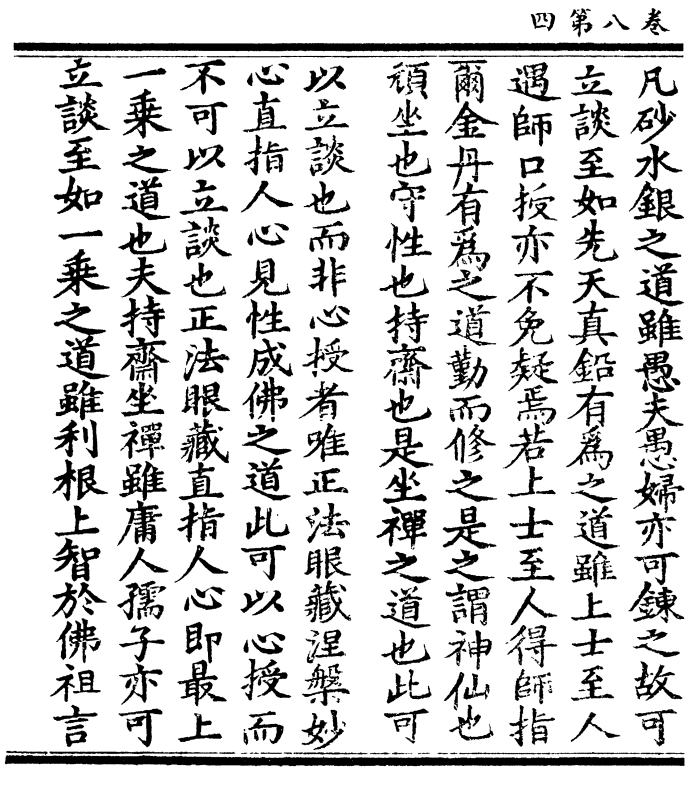 卷八第四
凡砂水銀之道雖愚夫愚婦亦可鍊之故可
立談至如先天真鉛有爲之道雖上士至人
遇師口授亦不免疑焉若上士至人得師指
爾金丹有爲之道勤而修之是之謂神仙也
頑坐也守性也持齋也是坐禪之道也此可
以立談也而非心授者唯正法眼藏涅槃妙
心直指人心見性成佛之道此可以心授而
不可以立談也正法眼藏直指人心即最上
一乘之道也夫持齋坐禪雖庸人孺子亦可
立談至如一乘之道雖利根上智於佛祖言